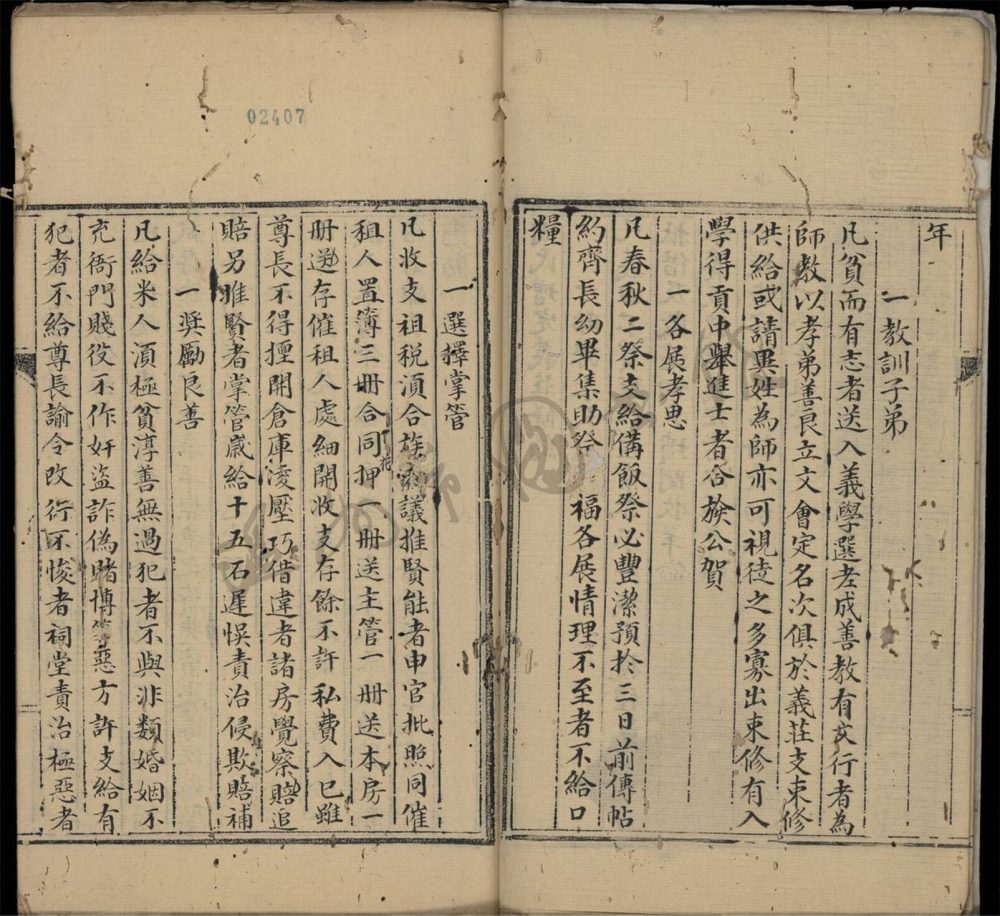 年
一教訓子弟
凡貧而有志者送入義學選老成善教有文行者為
師教以孝弟善良立文會定名次俱於義莊支束修
供給或請異姓為師亦可視徒之多寡出束修有入
學得貢中舉進士者合族公賀
一各展孝思
凡春秋二祭支給備飯祭必豐潔預於三日前傳帖
約齊長幼畢集助祭 福各展情理不至者不給口
糧
02407
一選擇掌管
凡收支祖稅須合族 議推賢能者申官批照同催
租人置簿三冊合同押一冊送主管一冊送本房一
冊選存催租人處細開收支存餘不許私費入已雖
尊長不得擅開倉庫凌壓巧借違者諸房覺察賠追
賠另推賢者掌管歲給十五石遲悞責治侵欺賠補
一奬勵良善
凡給米人須極貧淳善無過犯者不與非類婚姻不
充衙門賤役不作奸盜詐偽賭博等惡方許支給有
犯者不給尊長諭令改行不悛者祠堂責治極惡者